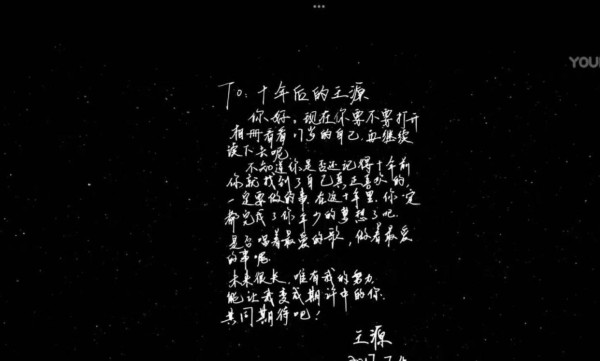 YOU
To: 十年后的王源
你好。现在你要不要打开
相册看看17岁的自己,再继续
读下去呢
不知道你是否还记得十年前
你就找到了自己真正喜欢的,
一定要做的事.在这十年里.你一定
都完成了你年少的梦想了吧.
是否唱着最爱的歌,做着最爱
的事呢
未来很长,唯有我的努力
能让我变成期许中的你.
共同期待吧!
王源
2017.